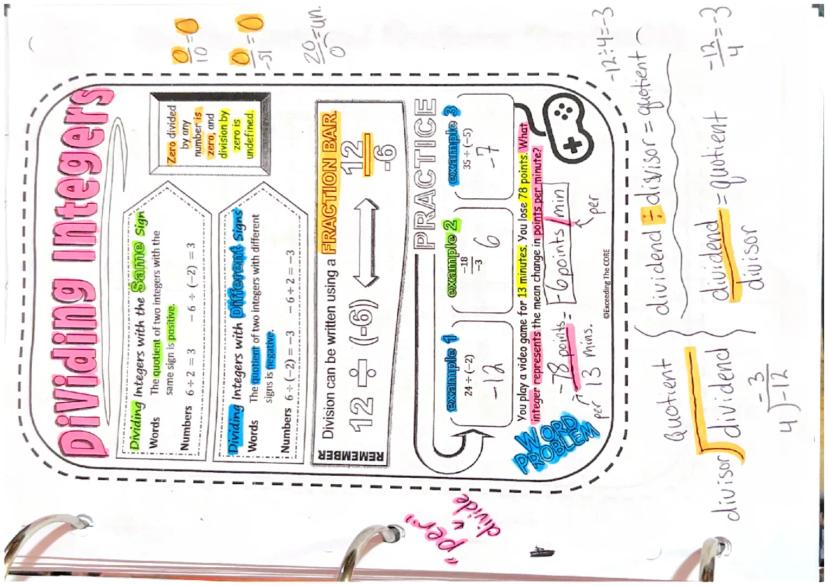 Dividing Integers
Dividing Integers with the Same Sign
Words The quotient of two integers with the
same sign is positive.
Numbers 6 ÷ 2 = 3 -6 ÷ (-2) = 3
Zero divided
by any
number is
zero, and
division by
zero is
undefined.
0/10 = 0
0/-51 = 0
20/0 = un.
Dividing Integers with Different Signs
Words The quotient of two integers with different
signs is negative.
Numbers 6 ÷ (-2) = -3 -6 ÷ 2 = -3
REMEMBER
Division can be written using a FRACTION BAR.
12 ÷ (-6) 12/-6
PRACTICE
example 1
24 ÷ (-2)
-12
example 2
-18/-3
6
example 3
35 ÷ (-5)
-7
WORD
PROBLEM
You play a video game for 13 minutes. You lose 78 points. What
integer represents the mean change in points per minute?
-78 points = -6 points/min
per 13 mins.
per
©Exceeding The CORE
"per"
divide
quotient
divisor dividend
dividend ÷ divisor = quotient
-12 ÷ 4 = -3
dividend = quotient
divisor
-12/4 = -3
-3
4 -12